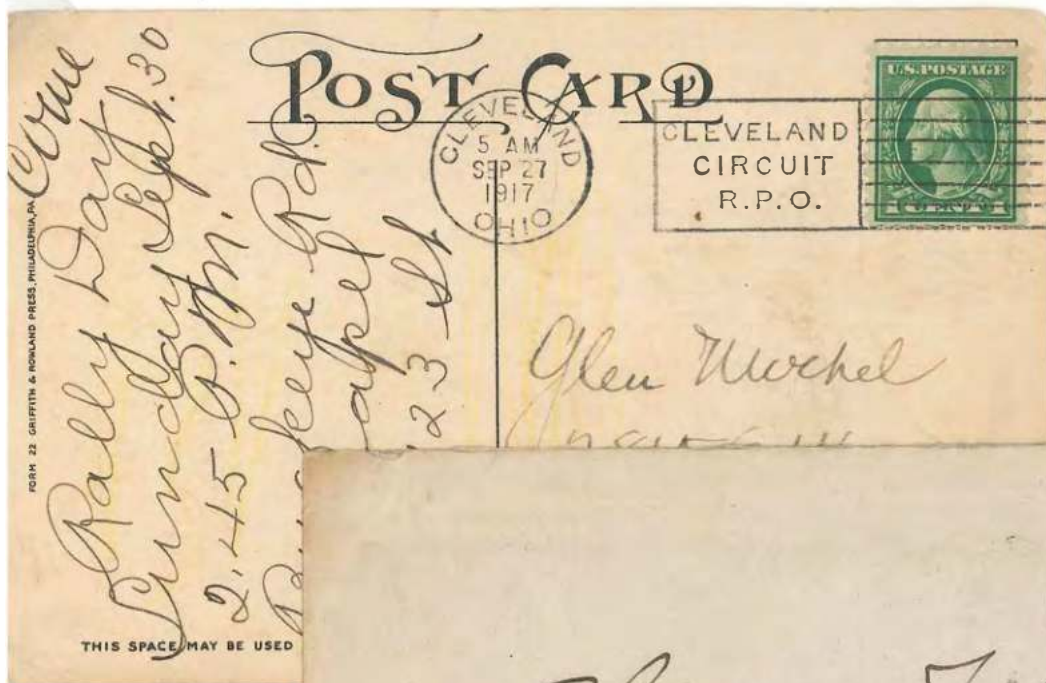 POST CARD
CLEVELAND
5 AM
SEP 27
1917
OHIO
CLEVELAND
CIRCUIT
R.P.O.
U.S. POSTAGE
FORM 22 GRIFFITH & ROWLAND PRESS, PHILADELPHIA, PA.
Come
Rally Day
Sunday Sept. 30
2.45 P.M.
Buckeye Rd.
apel
23 St
Glen Mochel
THIS SPACE MAY BE USED